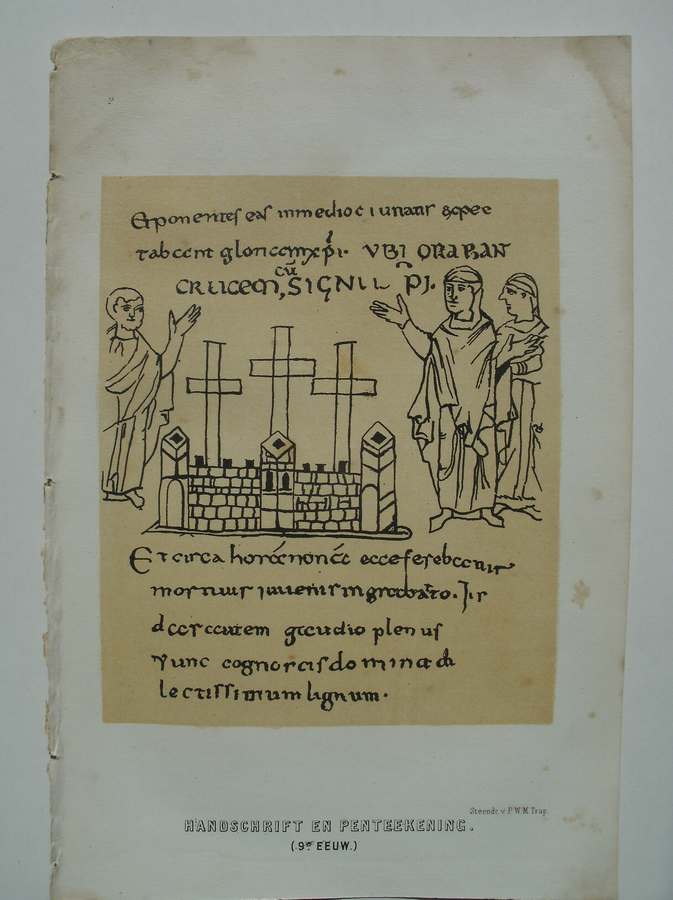 Et ponentes eas in medio civitatis expec
tabant gloriam xpi. UBI ORABANT
CRUCEM, CŪ SIGNU PI.
Et circa horā nonā ecce ferebatur
mortuus iuvenis in grabato. Iu
das autem gaudio plenus
Nunc cognoscis domina di
lectissimum lignum.
Steendr. v. P.W.M. Trap.
HANDSCHRIFT EN PENTEEKENING.
(9e EEUW.)